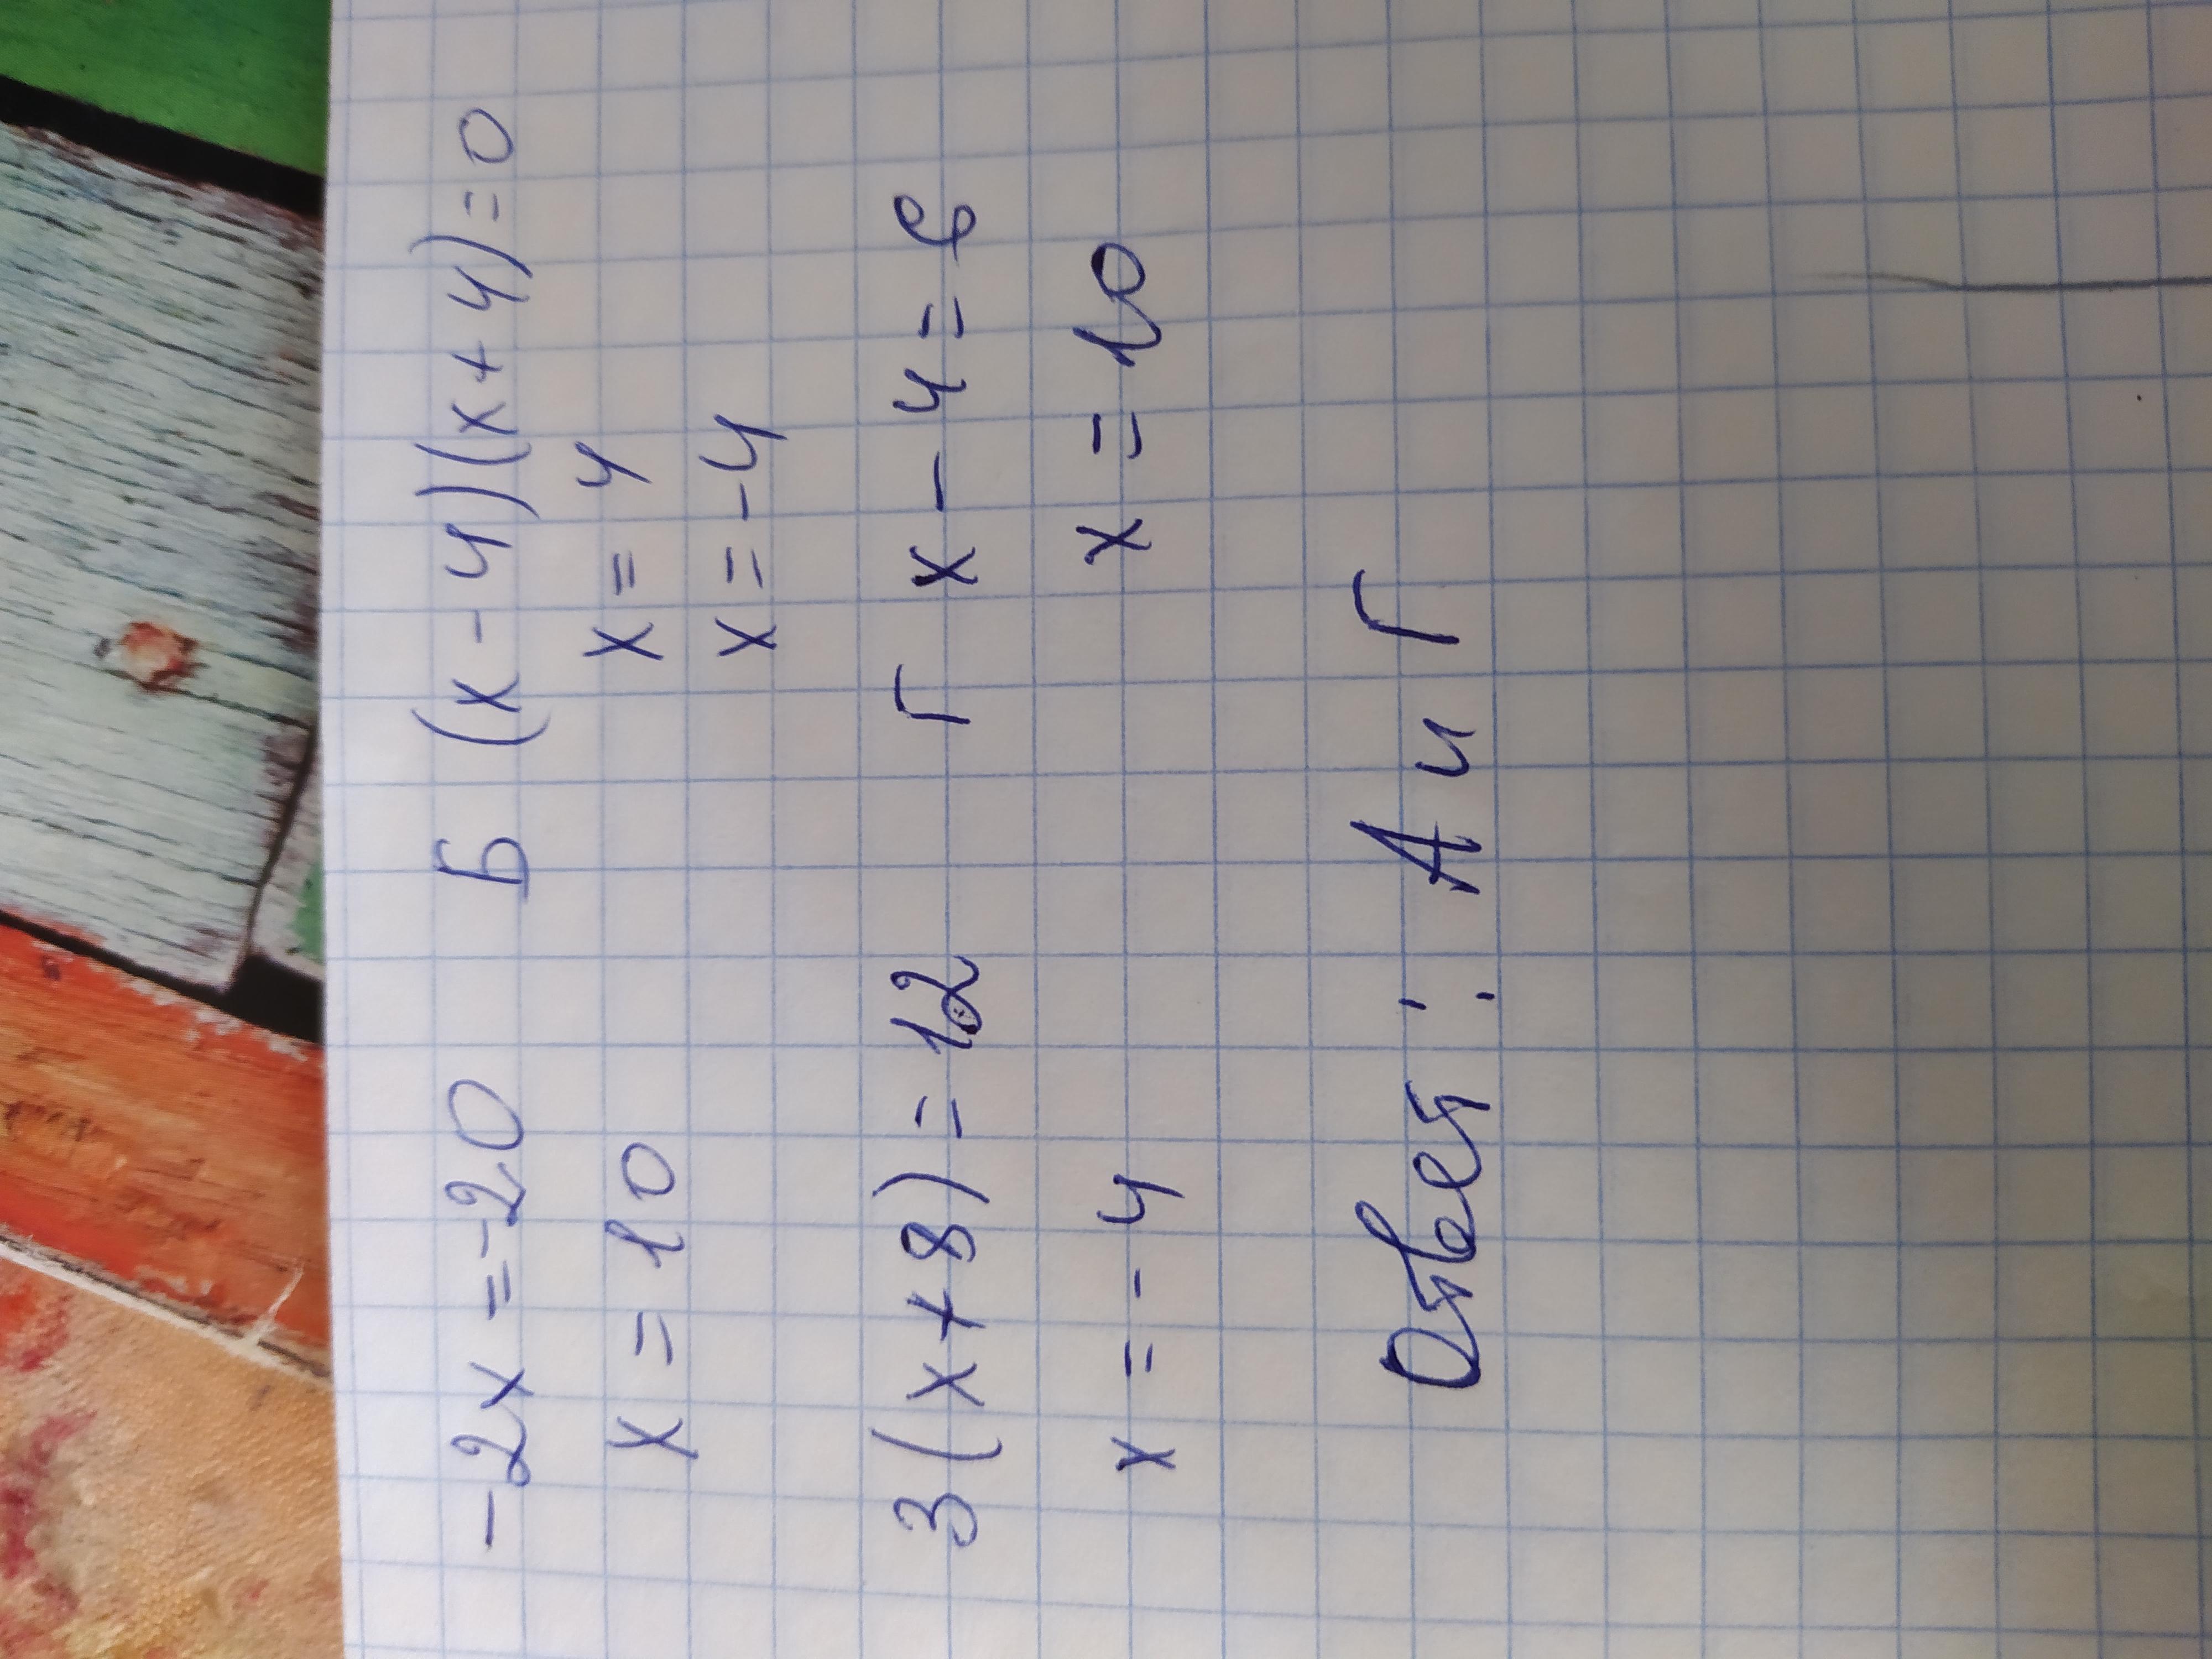 -2x = -20 Б (x - 4)(x + 4) = 0
x = 10 x = 4
x = -4
3(x + 8) = 12 Г x - 4 = 6
x = -4 x = 10
Ответ: А и Г